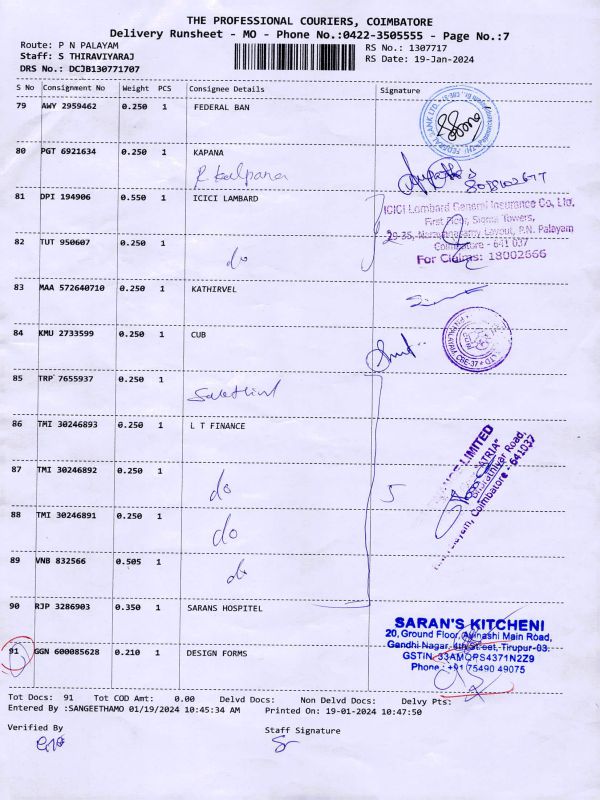 THE PROFESSIONAL COURIERS, COIMBATORE
Delivery Runsheet - MO - Phone No.:0422-3505555 - Page No.:7
Route: P N PALAYAM
Staff: S THIRAVIYARAJ
DRS No.: DCJB130771707
RS No.: 1307717
RS Date: 19-Jan-2024
S No Consignment No Weight PCS Consignee Details Signature
79 AWY 2959462 0.250 1 FEDERAL BAN
80 PGT 6921634 0.250 1 KAPANA
R Kalpana
81 DPI 194906 0.550 1 ICICI LAMBARD
ICICI Lombard General Insurance Co, Ltd.
First Floor, Sigma Towers,
P.N. Palayam
Coimbatore - 641 037
For Claims: 18002666
82 TUT 950607 0.250 1
do
83 MAA 572640710 0.250 1 KATHIRVEL
84 KMU 2733599 0.250 1 CUB
85 TRP 7655937 0.250 1
86 TMI 30246893 0.250 1 L T FINANCE
87 TMI 30246892 0.250 1
do
5
LIMITED
Coimbatore - 641037
88 TMI 30246891 0.250 1
do
89 VNB 832566 0.505 1
do
90 RJP 3286903 0.350 1 SARANS HOSPITEL
SARAN'S KITCHENI
20,Ground Floor, Avinashi Main Road,
Gandhi Nagar, 4th Street, Tirupur-03.
GSTIN: 33AMQPS4371N2Z9
Phone : +91 75490 49075
91 GGN 600085628 0.210 1 DESIGN FORMS
Tot Docs: 91 Tot COD Amt: 0.00 Delvd Docs: Non Delvd Docs: Delvy Pts:
Entered By :SANGEETHAMO 01/19/2024 10:45:34 AM Printed On: 19-01-2024 10:47:50
Verified By
Staff Signature